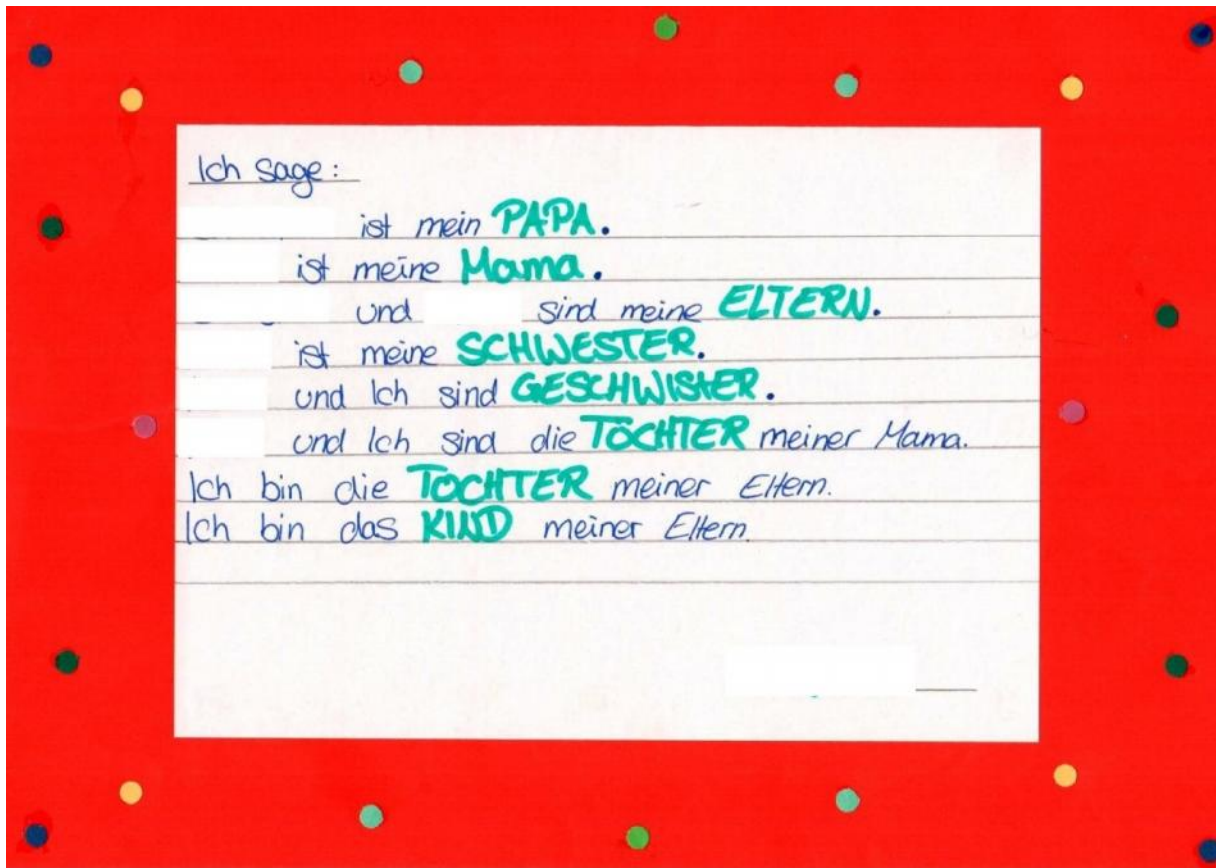 Ich sage:
ist mein PAPA.
ist meine Mama.
und sind meine ELTERN.
ist meine SCHWESTER.
und Ich sind GESCHWISTER.
und Ich sind die TÖCHTER meiner Mama.
Ich bin die TOCHTER meiner Eltern.
Ich bin das KIND meiner Eltern.